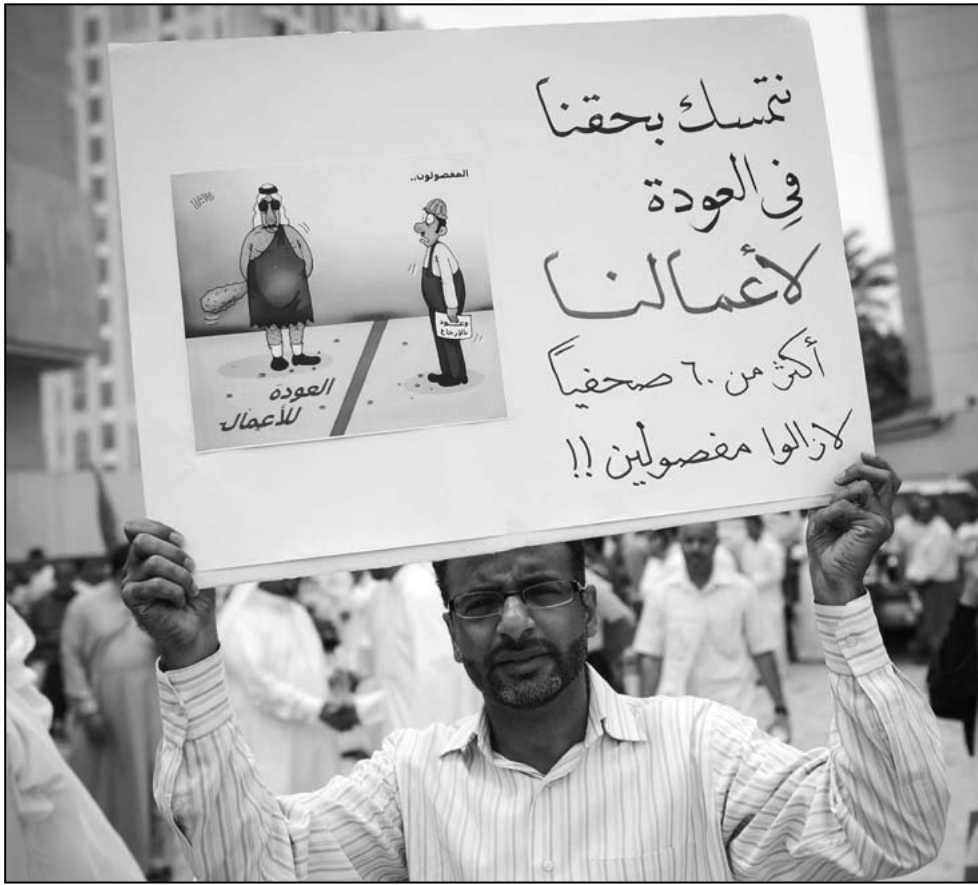 نتمسك بحقنا
في العودة
لأعمالنا
أكثر من ٦٠ صحفياً
لازالوا مفصولين !!
المفصولون..
وعـود
بالإرجاع
العودة
للأعمال